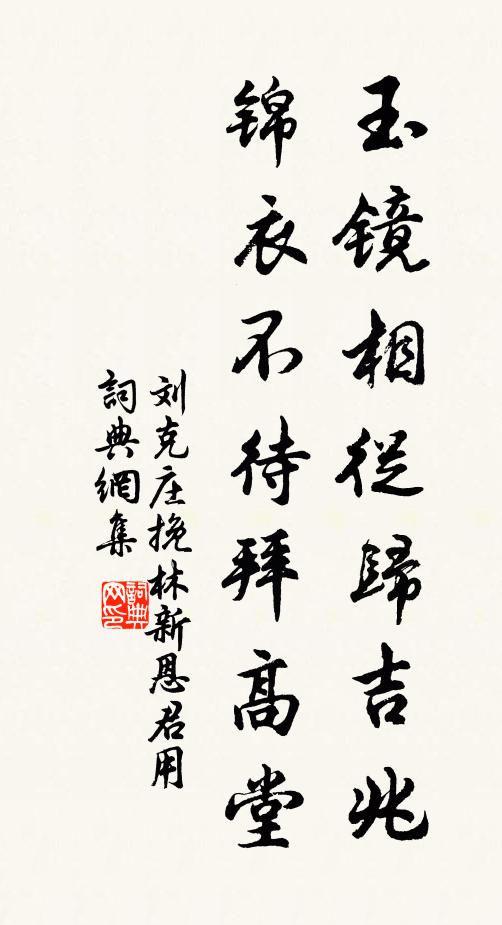 玉鏡相從歸吉兆
錦衣不待拜高堂
刘克庄挽林新恩君用
詞典網集
詞典网印